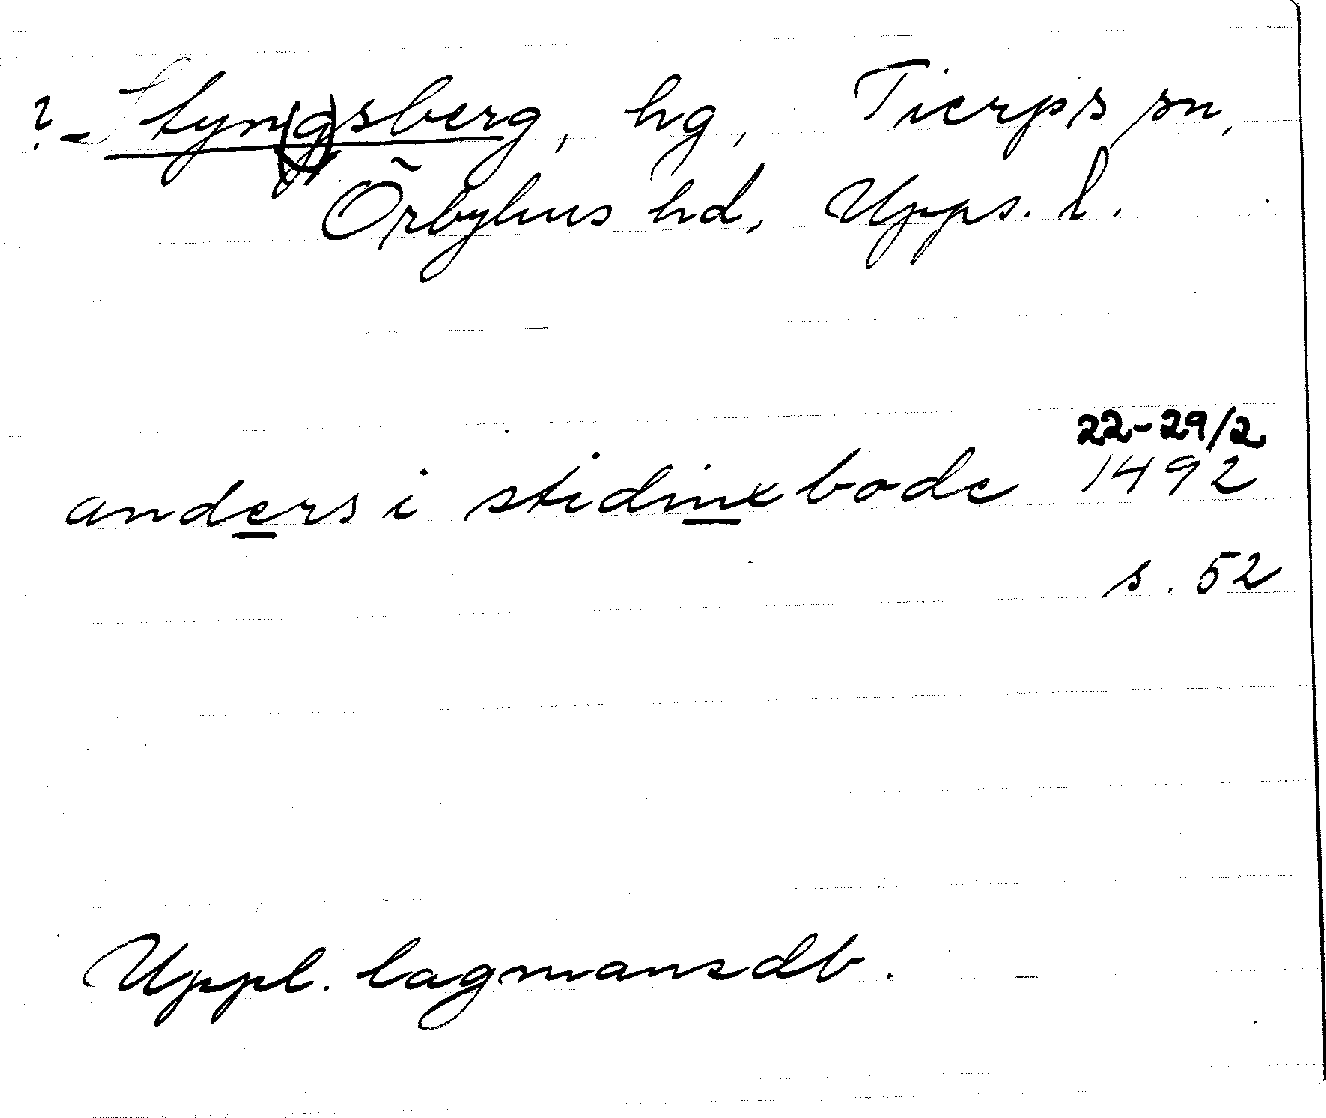 ?- Styn(g)sberg, hg, Tierps sn,
Örbyhus hd, Upps. l.
22-29/2
anders i stidinxbode 1492
s. 52
Uppl. lagmansdb.